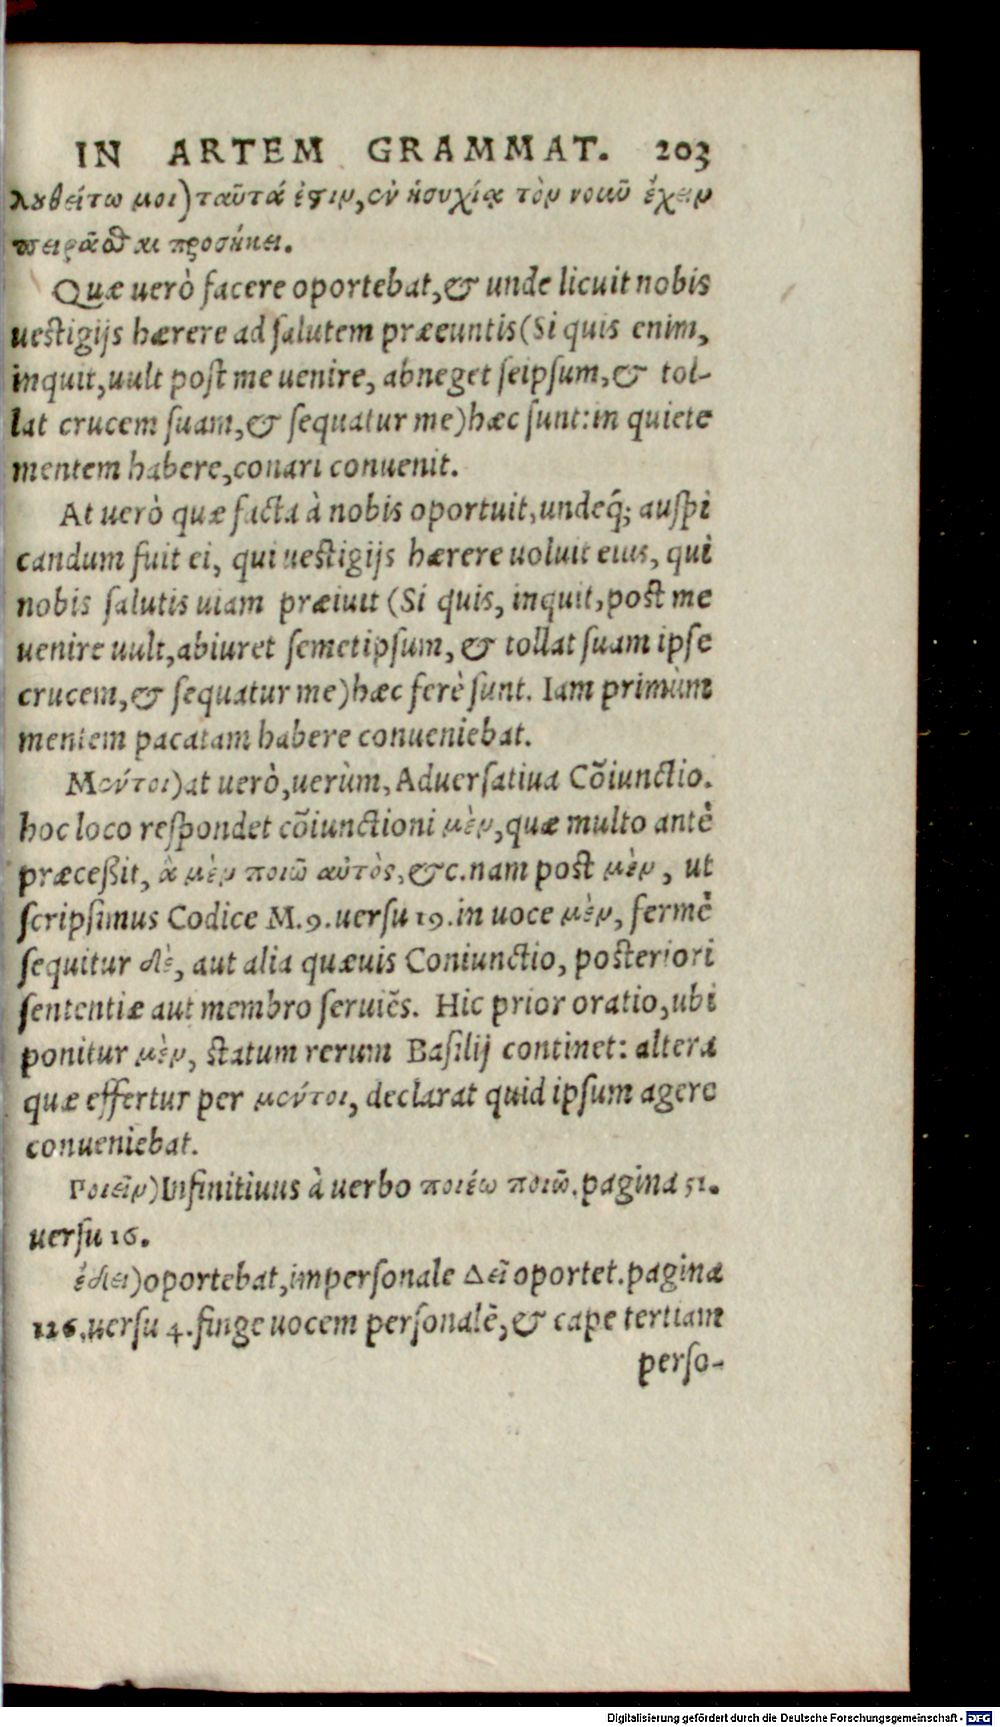 IN ARTEM GRAMMAT. 203
λουθείτω μοι) ταῦτά ἐστιν, ἐν ἡσυχίᾳ τὸν νοιῦ ἔχειν
πειρᾶσθαι προσήκει.
Quæ uerò facere oportebat, & unde licuit nobis
uestigijs hærere ad salutem præeuntis (Si quis enim,
inquit, uult post me uenire, abneget seipsum, & tol-
lat crucem suam, & sequatur me) hæc sunt: in quiete
mentem habere, conari conuenit.
At uerò quæ facta à nobis oportuit, undeq́; auspi
candum fuit ei, qui uestigijs hærere uoluit eius, qui
nobis salutis uiam præiuit (Si quis, inquit, post me
uenire uult, abiuret semetipsum, & tollat suam ipse
crucem, & sequatur me) hæc ferè sunt. Iam primùm
mentem pacatam habere conueniebat.
Μέντοι) at uerò, uerùm, Aduersatiua Cōiunctio.
hoc loco respondet cōiunctioni μὲν, quæ multo antè
præceßit, ἃ μὲν ποιῶ αὐτὸς, &c. nam post μὲν, ut
scripsimus Codice M. 9. uersu 19. in uoce μὲν, fermè
sequitur δὲ, aut alia quæuis Coniunctio, posteriori
sententiæ aut membro seruiēs. Hic prior oratio, ubi
ponitur μὲν, statum rerum Basilij continet: altera
quæ effertur per μέντοι, declarat quid ipsum agere
conueniebat.
Ποιεῖν) Infinitiuus à uerbo ποιέω ποιῶ. pagina 51.
uersu 16.
ἔδει) oportebat, impersonale Δεῖ oportet. pagina
126. uersu 4. finge uocem personalē, & cape tertiam
perso-
Digitalisierung gefördert durch die Deutsche Forschungsgemeinschaft - DFG